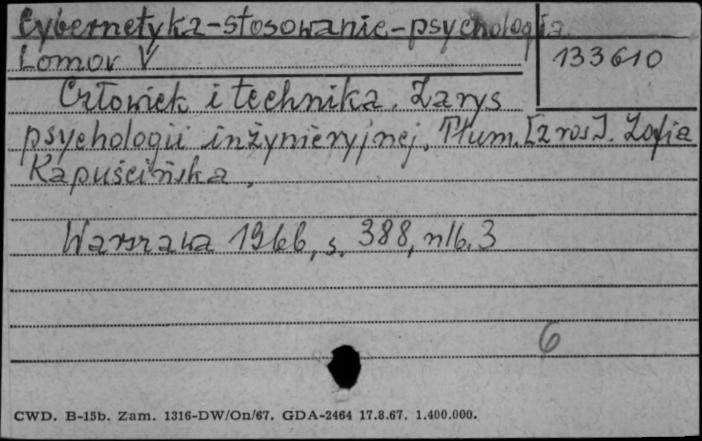 Cybernetyka-stosowanie-psychologia
Lomov V
133610
Człowiek i technika. Zarys
psychologii inżynieryjnej. Tłum. [z ros]. Zofia
Kapuścińska,
Warszawa 1966, s. 388, nlb. 3
6
CWD. B-15b. Zam. 1316-DW/On/67. GDA-2464 17.8.67. 1.400.000.